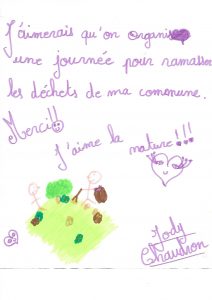 J'aimerais qu'on organise
une journée pour ramasser
les déchets de ma commune.
Merci!!
J'aime la nature!!!
Jody
Chaudron